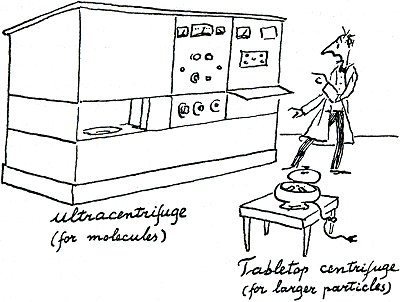 ultracentrifuge
(for molecules)
Tabletop centrifuge
(for larger particles)